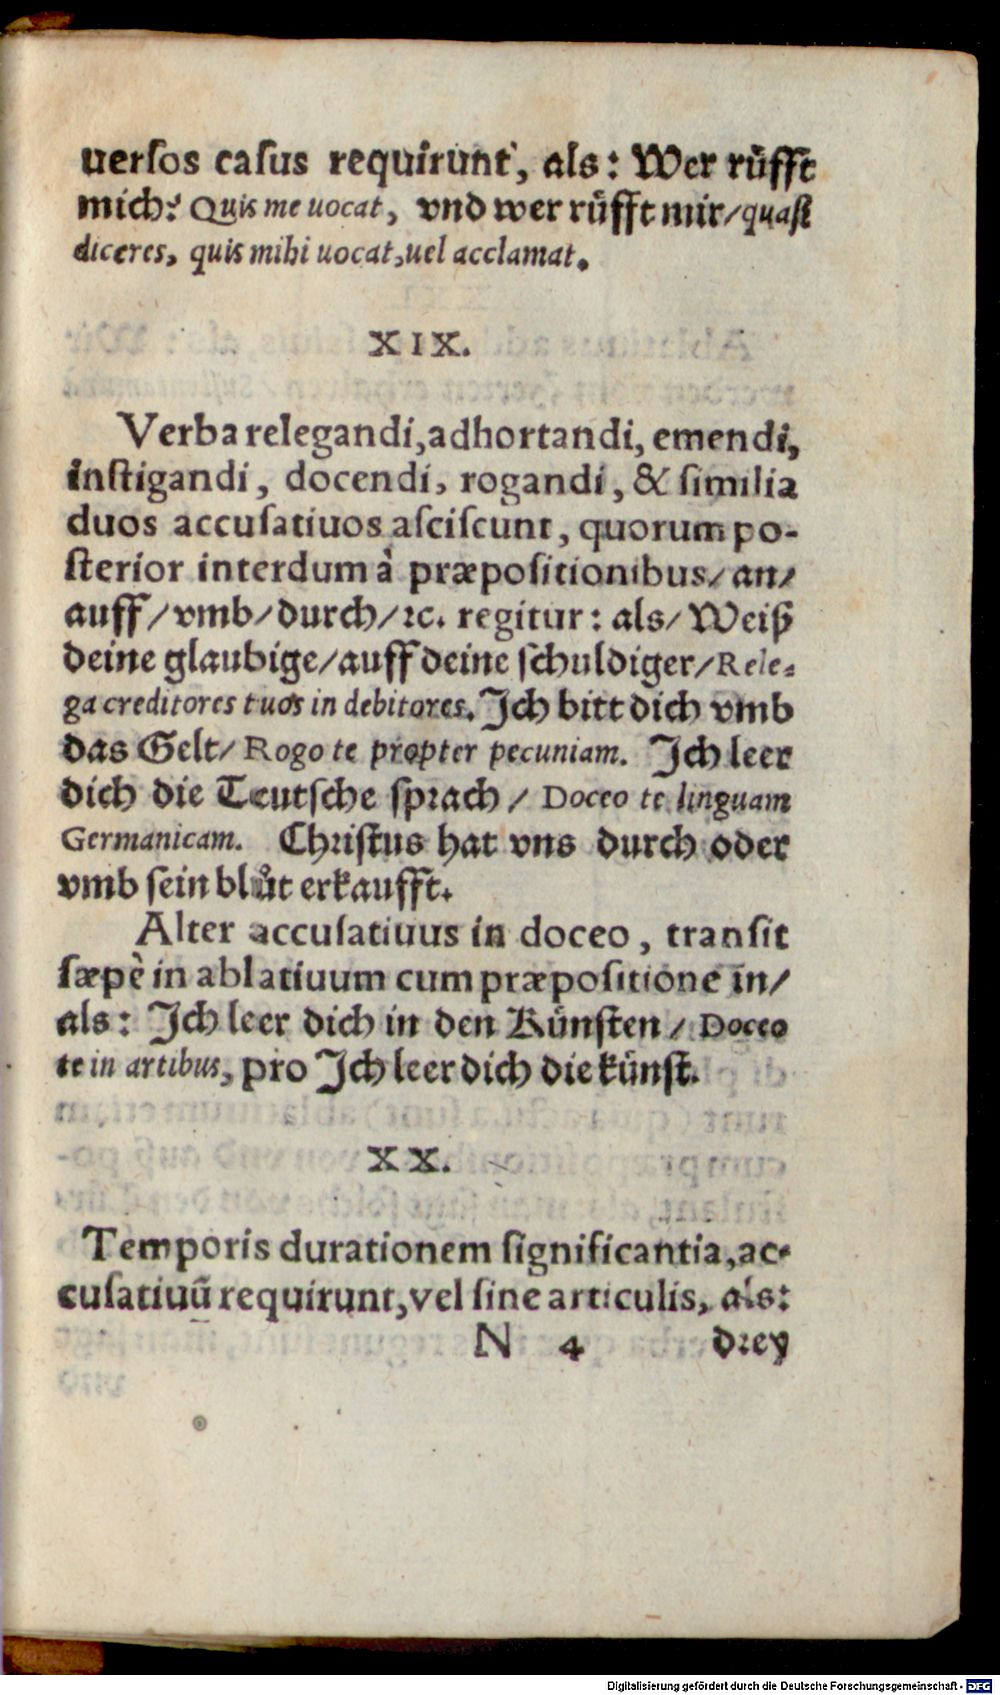 uersos casus requirunt, als: Wer rüfft
mich? Quis me uocat, vnd wer rüfft mir/ quasi
diceres, quis mihi uocat, uel acclamat.
XIX.
Verba relegandi, adhortandi, emendi,
instigandi, docendi, rogandi, & similia
duos accusatiuos asciscunt, quorum po-
sterior interdum à præpositionibus/ an/
auff/ vmb/ durch/ ꝛc. regitur: als/ Weiß
deine glaubige/ auff deine schuldiger/ Rele-
ga creditores tuos in debitores. Ich bitt dich vmb
das Gelt/ Rogo te propter pecuniam. Ich leer
dich die Teutsche sprach/ Doceo te linguam
Germanicam. Christus hat vns durch oder
vmb sein blůt erkaufft.
Alter accusatiuus in doceo, transit
sæpè in ablatiuum cum præpositione in/
als: Ich leer dich in den Künsten/ Doceo
te in artibus, pro Ich leer dich die künst.
XX.
Temporis durationem significantia, ac-
cusatiuũ requirunt, vel sine articulis, als:
N 4 drey
Digitalisierung gefördert durch die Deutsche Forschungsgemeinschaft - DFG